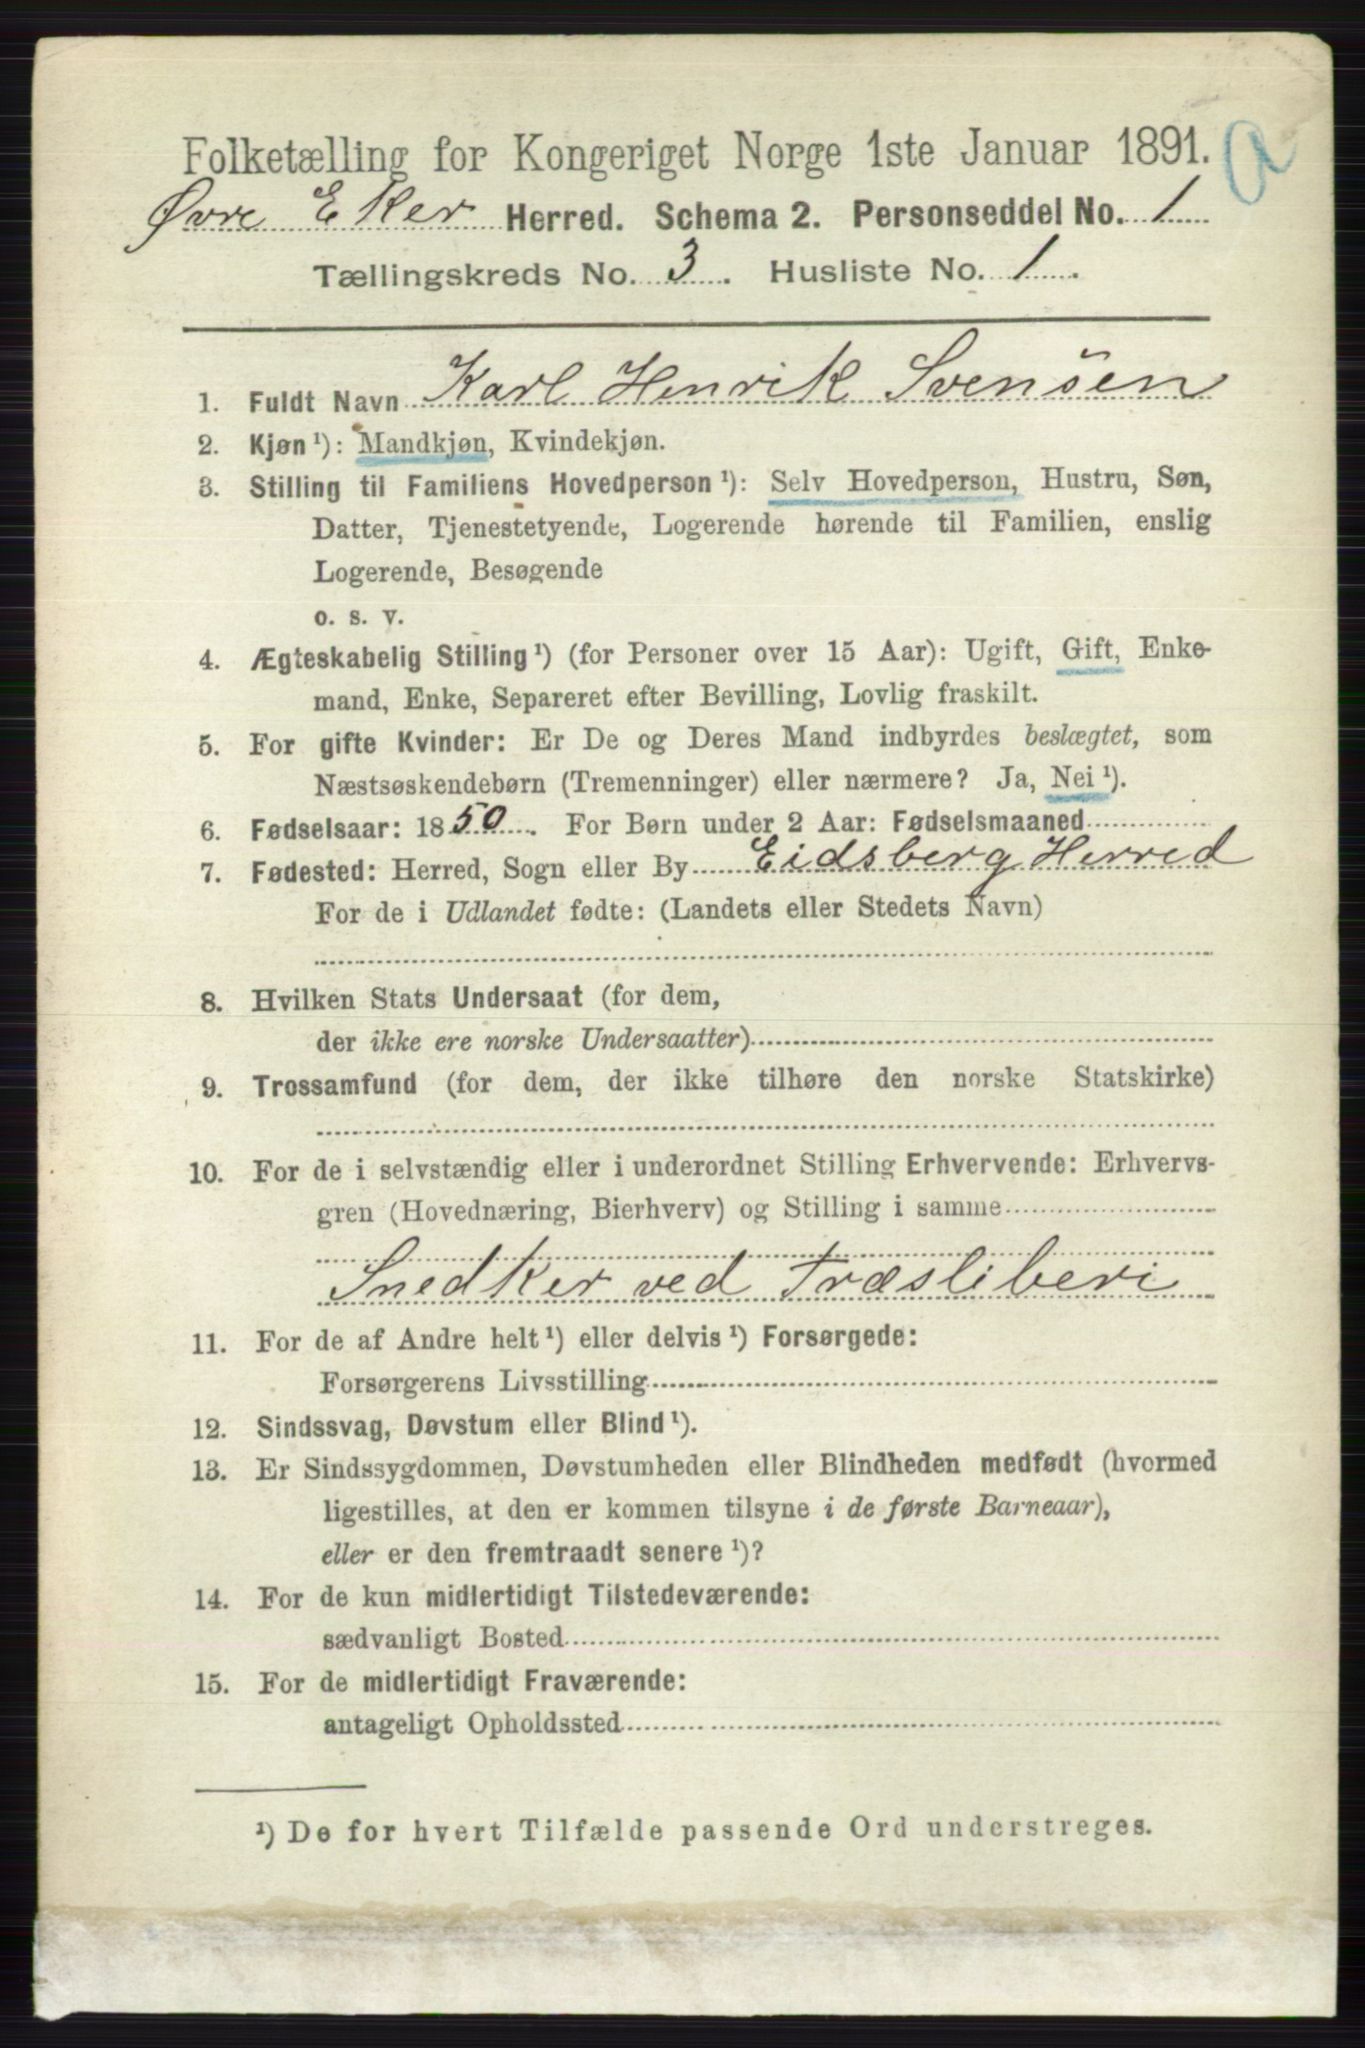 Folketælling for Kongeriget Norge 1ste Januar 1891.
a
Øvre Eker Herred. Schema 2. Personseddel No. 1
Tællingskreds No. 3. Husliste No. 1.
1. Fuldt Navn Karl Henrik Svensen
2. Kjøn ¹): Mandkjøn, Kvindekjøn.
3. Stilling til Familiens Hovedperson ¹): Selv Hovedperson, Hustru, Søn,
Datter, Tjenestetyende, Logerende hørende til Familien, enslig
Logerende, Besøgende
o. s. v.
4. Ægteskabelig Stilling ¹) (for Personer over 15 Aar): Ugift, Gift, Enke-
mand, Enke, Separeret efter Bevilling, Lovlig fraskilt.
5. For gifte Kvinder: Er De og Deres Mand indbyrdes beslægtet, som
Næstsøskendebørn (Tremenninger) eller nærmere? Ja, Nei ¹).
6. Fødselsaar: 1850. For Børn under 2 Aar: Fødselsmaaned
7. Fødested: Herred, Sogn eller By Eidsberg Herred
For de i Udlandet fødte: (Landets eller Stedets Navn)
8. Hvilken Stats Undersaat (for dem,
der ikke ere norske Undersaatter)
9. Trossamfund (for dem, der ikke tilhøre den norske Statskirke)
10. For de i selvstændig eller i underordnet Stilling Erhvervende: Erhvervs-
gren (Hovednæring, Bierhverv) og Stilling i samme
Snedker ved Træsliberi
11. For de af Andre helt ¹) eller delvis ¹) Forsørgede:
Forsørgerens Livsstilling
12. Sindssvag, Døvstum eller Blind ¹).
13. Er Sindssygdommen, Døvstumheden eller Blindheden medfødt (hvormed
ligestilles, at den er kommen tilsyne i de første Barneaar),
eller er den fremtraadt senere ¹)?
14. For de kun midlertidigt Tilstedeværende:
sædvanligt Bosted
15. For de midlertidigt Fraværende:
antageligt Opholdssted
¹) De for hvert Tilfælde passende Ord understreges.